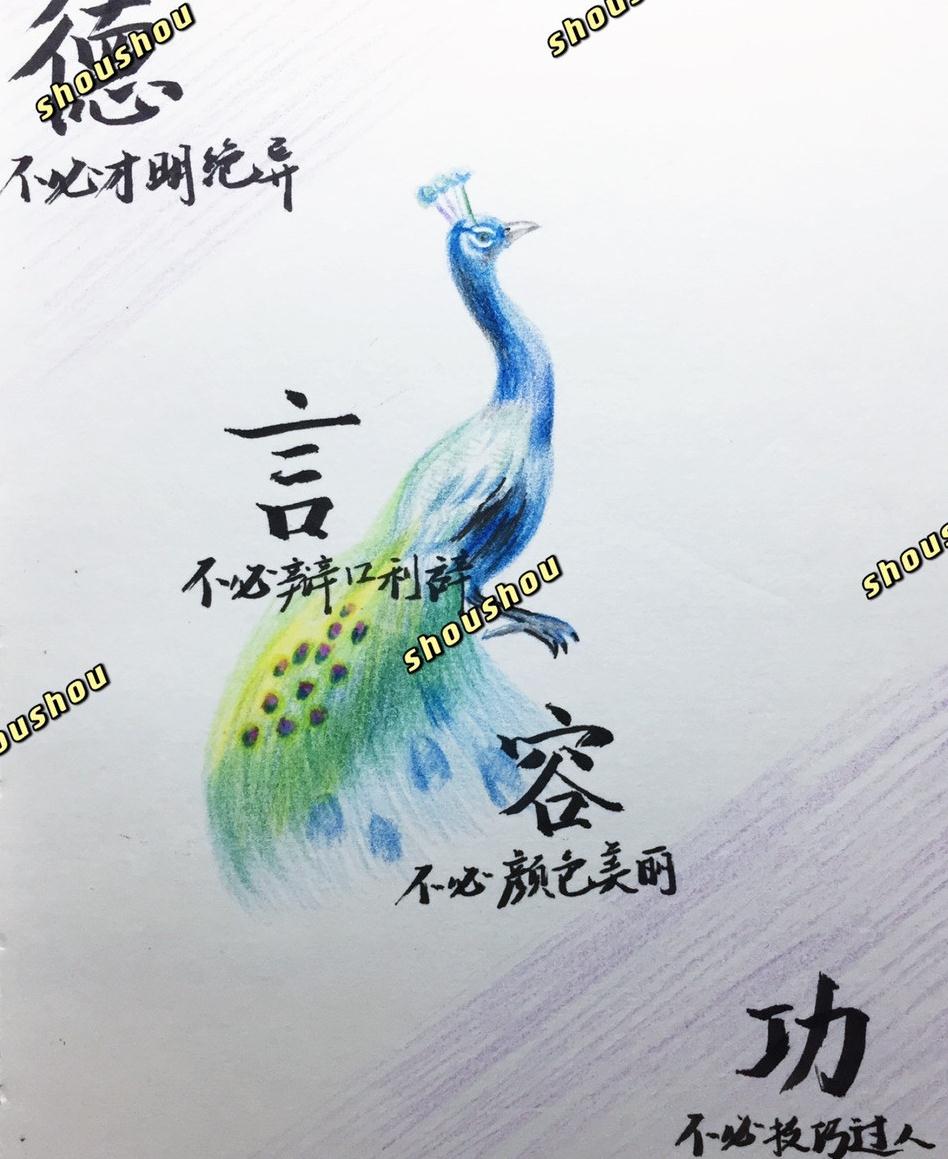 德
不必才明绝异
言
不必辩口利辞
容
不必颜色美丽
功
不必技巧过人
shoushou
shous
shoushou
shous
oushou